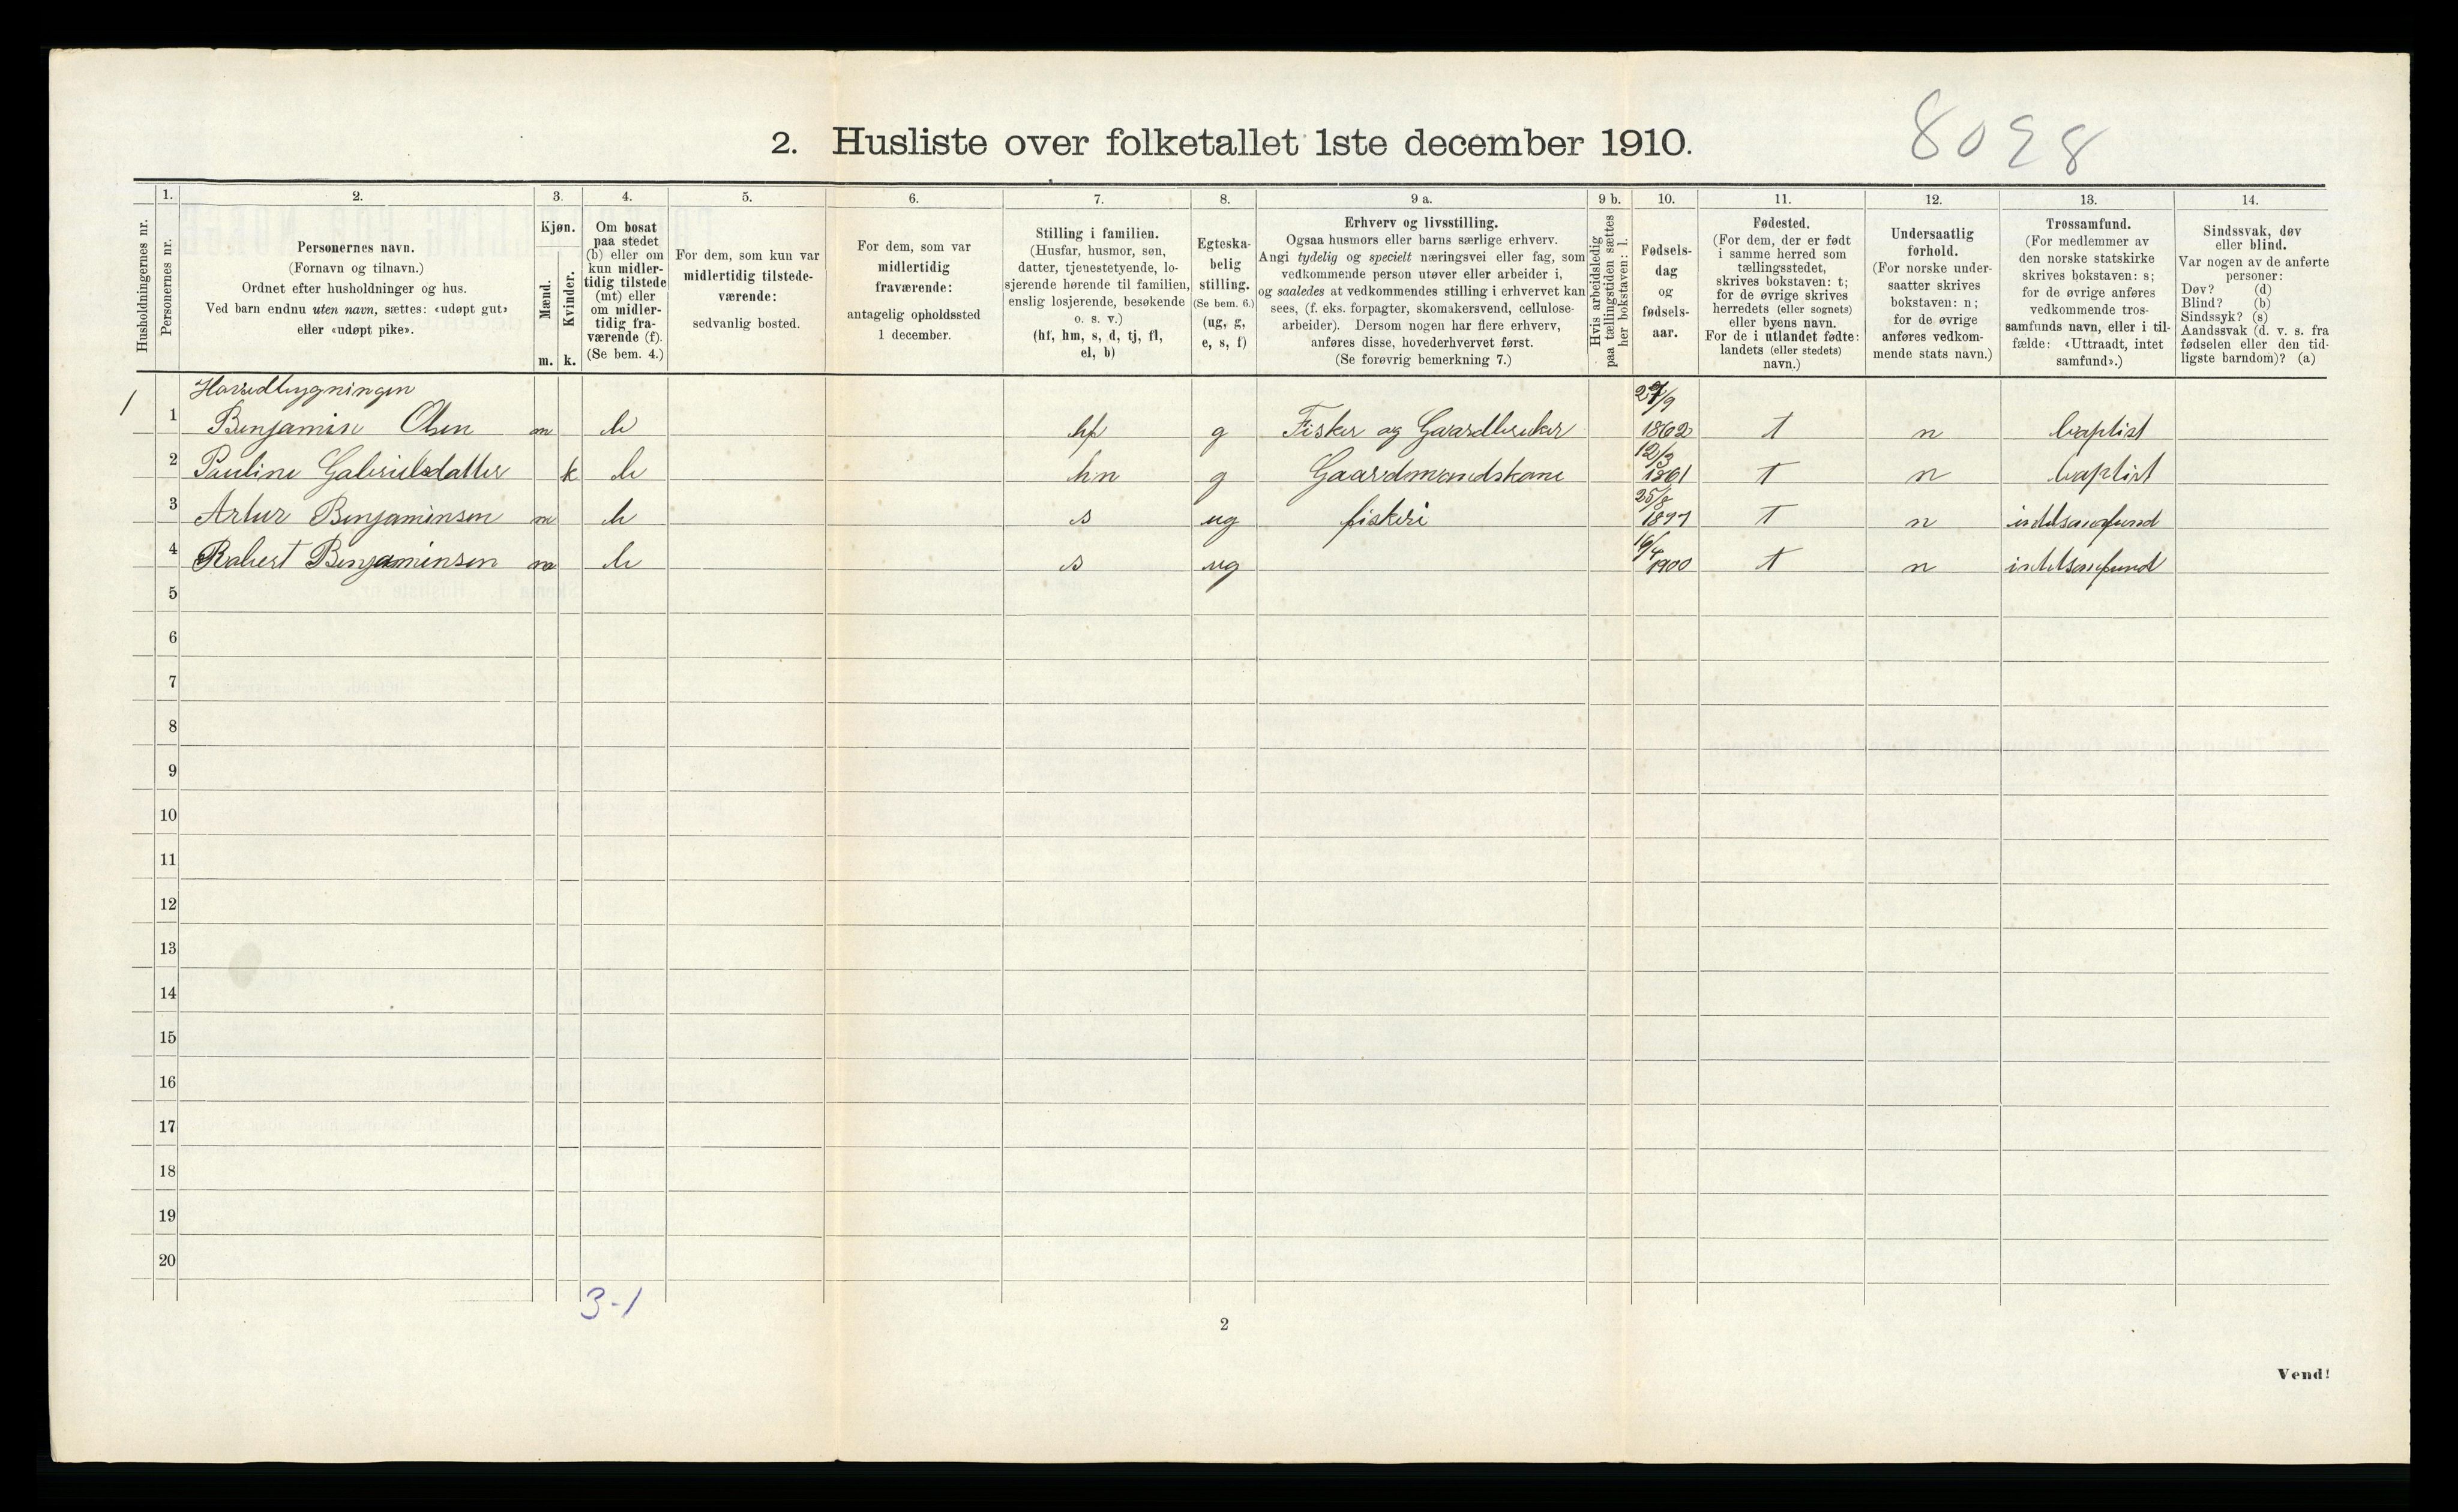 2. Husliste over folketallet 1ste december 1910.
8098
Husholdningernes nr.
1.
Personernes nr.
2.
Personernes navn.
(Fornavn og tilnavn.)
Ordnet efter husholdninger og hus.
Ved barn endnu uten navn, sættes: «udøpt gut»
eller «udøpt pike».
3.
Kjøn.
Mænd.
Kvinder.
m. k.
4.
Om bosat
paa stedet
(b) eller om
kun midler-
tidig tilstede
(mt) eller
om midler-
tidig fra-
værende (f).
(Se bem. 4.)
5.
For dem, som kun var
midlertidig tilstede-
værende:
sedvanlig bosted.
6.
For dem, som var
midlertidig
fraværende:
antagelig opholdssted
1 december.
7.
Stilling i familien.
(Husfar, husmor, søn,
datter, tjenestetyende, lo-
sjerende hørende til familien,
enslig losjerende, besøkende
o. s. v.)
(hf, hm, s, d, tj, fl,
el, b)
8.
Egteska-
belig
stilling.
(Se bem. 6.)
(ug, g,
e, s, f)
9 a.
Erhverv og livsstilling.
Ogsaa husmors eller barns særlige erhverv.
Angi tydelig og specielt næringsvei eller fag, som
vedkommende person utøver eller arbeider i,
og saaledes at vedkommendes stilling i erhvervet kan
sees, (f. eks. forpagter, skomakersvend, cellulose-
arbeider). Dersom nogen har flere erhverv,
anføres disse, hovederhvervet først.
(Se forøvrig bemerkning 7.)
9 b.
Hvis arbeidsledig
paa tællingstiden sættes
her bokstaven: l.
10.
Fødsels-
dag
og
fødsels-
aar.
11.
Fødested.
(For dem, der er født
i samme herred som
tællingsstedet,
skrives bokstaven: t;
for de øvrige skrives
herredets (eller sognets)
eller byens navn.
For de i utlandet fødte:
landets (eller stedets)
navn.)
12.
Undersaatlig
forhold.
(For norske under-
saatter skrives
bokstaven: n;
for de øvrige
anføres vedkom-
mende stats navn.)
13.
Trossamfund.
(For medlemmer av
den norske statskirke
skrives bokstaven: s;
for de øvrige anføres
vedkommende tros-
samfunds navn, eller i til-
fælde: «Uttraadt, intet
samfund».)
14.
Sindssvak, døv
eller blind.
Var nogen av de anførte
personer:
Døv? (d)
Blind? (b)
Sindssyk? (s)
Aandssvak (d. v. s. fra
fødselen eller den tid-
ligste barndom)? (a)
Hovedbygningen
1 1 Benjamin Olsen m b hf g Fisker og Gaardbruker /9 1862 t n baptist
2 Pauline Gabrielsdatter k b hm g Gaardmandskone 12/3 1861 t n baptist
3 Artur Benjaminsen m b s ug fiskeri 25/8 1897 t n intetsamfund
4 Robert Benjaminsen m b s ug 16/4 1900 t n intetsamfund
5
6
7
8
9
10
11
12
13
14
15
16
17
18
19
20
3-1
2
Vend!